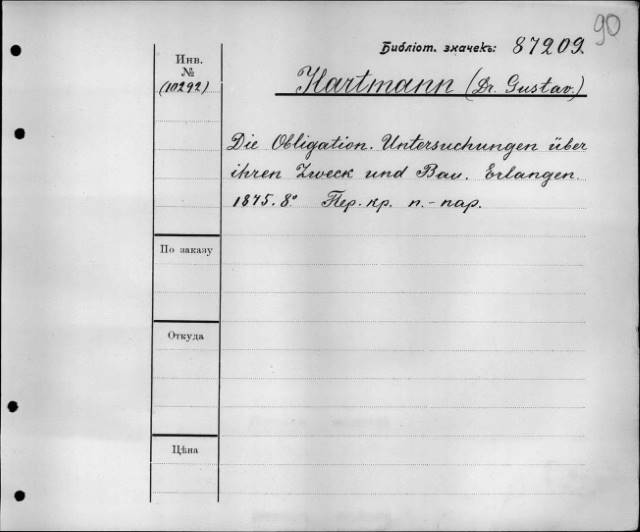 90
Библіот. значекъ: 87209
Инв.
№
(10292)
Hartmann (Dr. Gustav.)
Die Obligation. Untersuchungen über
ihren Zweck und Bau. Erlangen.
1875. 8° Пер. кр. п.-пар.
По заказу
Откуда
Цѣна